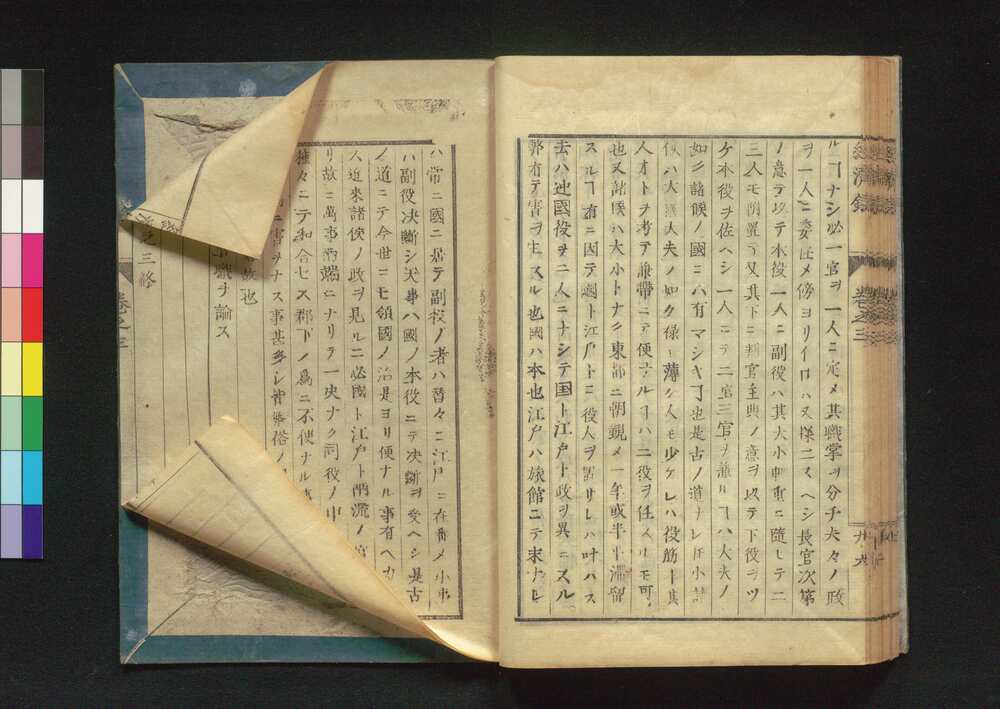 ルヿナシ必一官ヲ一人ニ定メ其職掌ヲ分チ夫々ノ政
ヲ一人ニ委任メ傍ヨリイロハヌ様ニスヘシ長官次第
ノ意テ以テ本役一人ニ副役ハ其大小軽重ニ随レテ二
三人モ可置又其下ニ判官主典ノ意ヲ以テ下役ヲツ
ケ本役ヲ佐ヘシ一人ニテ二官三官ヲ兼ルヿハ大夫ノ
如シ諸候ノ國ニハ有マシキヿ也是古ノ道ナレ𪜈小諸
候ハ大國ノ大夫ノ如ク祿モ薄ク人モ少ケレハ役筋ト其
人オトヲ考テ兼帯ニテ便ナルヿハ二役ヲ任スルモ可
也又諸候ハ大小トナク東都ニ朝覲メ一年或半年滞留
スルヿ有ニ因テ國ト江戸トニ役人ヲ置サレハ叶ハス
去ハ迚國役ヲ二人ニナシテ国ト江戸ト政ヲ異ニスル
弊有テ害ヲ生スル也國ハ本也江戸ハ旅館ニテ末ナレ
ハ常ニ國ニ居テ副役ノ者ハ替々ニ江戸ニ在番メ小事
ハ副役決断シ大事ハ國ノ本役ニテ決断ヲ受ヘシ是古
ノ道ニテ今世ニモ領國ノ治是ヨリ便ナル事有ヘカ
ス近來諸侯ノ政ヲ見ルニ必國ト江戸ト両流ノ
リ故ニ萬事両端ニナリテ一決ナク同役ノ中
種々ニテ和合セス郡下ノ爲ニ不便ナル
ニ害ヲナス事甚多シ皆
故也
職ヲ論ス
之三終
卷之三
濟録
卷之三
廿六